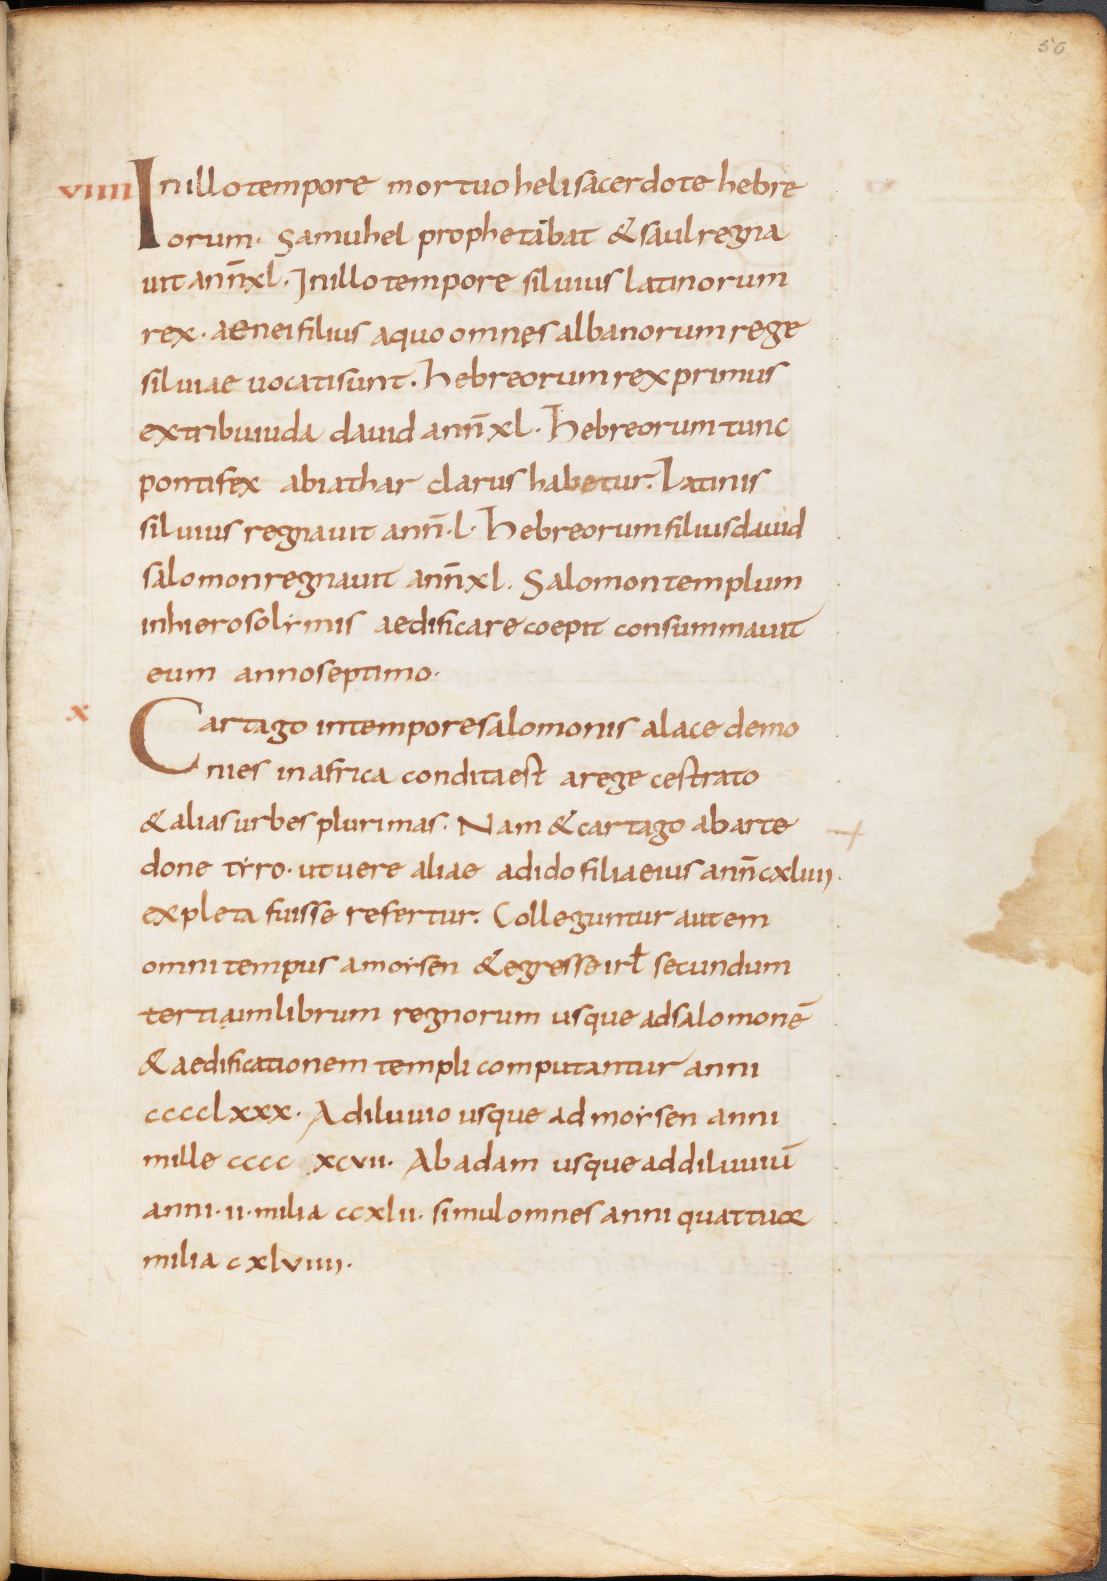 50
viiii In illo tempore mortuo heli sacerdote hebre
orum· Samuhel prophetabat & saul regna
uit ann̄ xl· In illo tempore siluius latinorum
rex· aenei filius a quo omnes albanorum rege
siluiae uocati sunt· hebreorum rex primus
ex tribu iuda dauid ann̄ xl· hebreorum tunc
pontifex abiathar clarus habetur· Latinis
siluius regnauit ann̄·l· hebreorum filius dauid
salomon regnauit ann̄ xl· Salomon templum
in hierosolẏmis aedificare coepit consummauit
eum anno septimo·
x Cartago in tempore salomonis alacedemo
nies in africa condita est a rege cestrato
& alias urbes plurimas· Nam & cartago ab arte
done tẏro· ut uere aliae a dido filia eius ann̄ cxliiii·
expleta fuisse refertur· Colleguntur autem
omni tempus a moẏsen & egresse irł secundum
tertiaum librum regnorum usque ad salomonē
& aedificationem templi computantur anni
cccclxxx· A diluuio usque ad moẏsen anni
mille cccc xcvii· Ab adam usque ad diluuiū
anni·ii·milia ccxlii· simul omnes anni quattuor
milia cxlviiii·